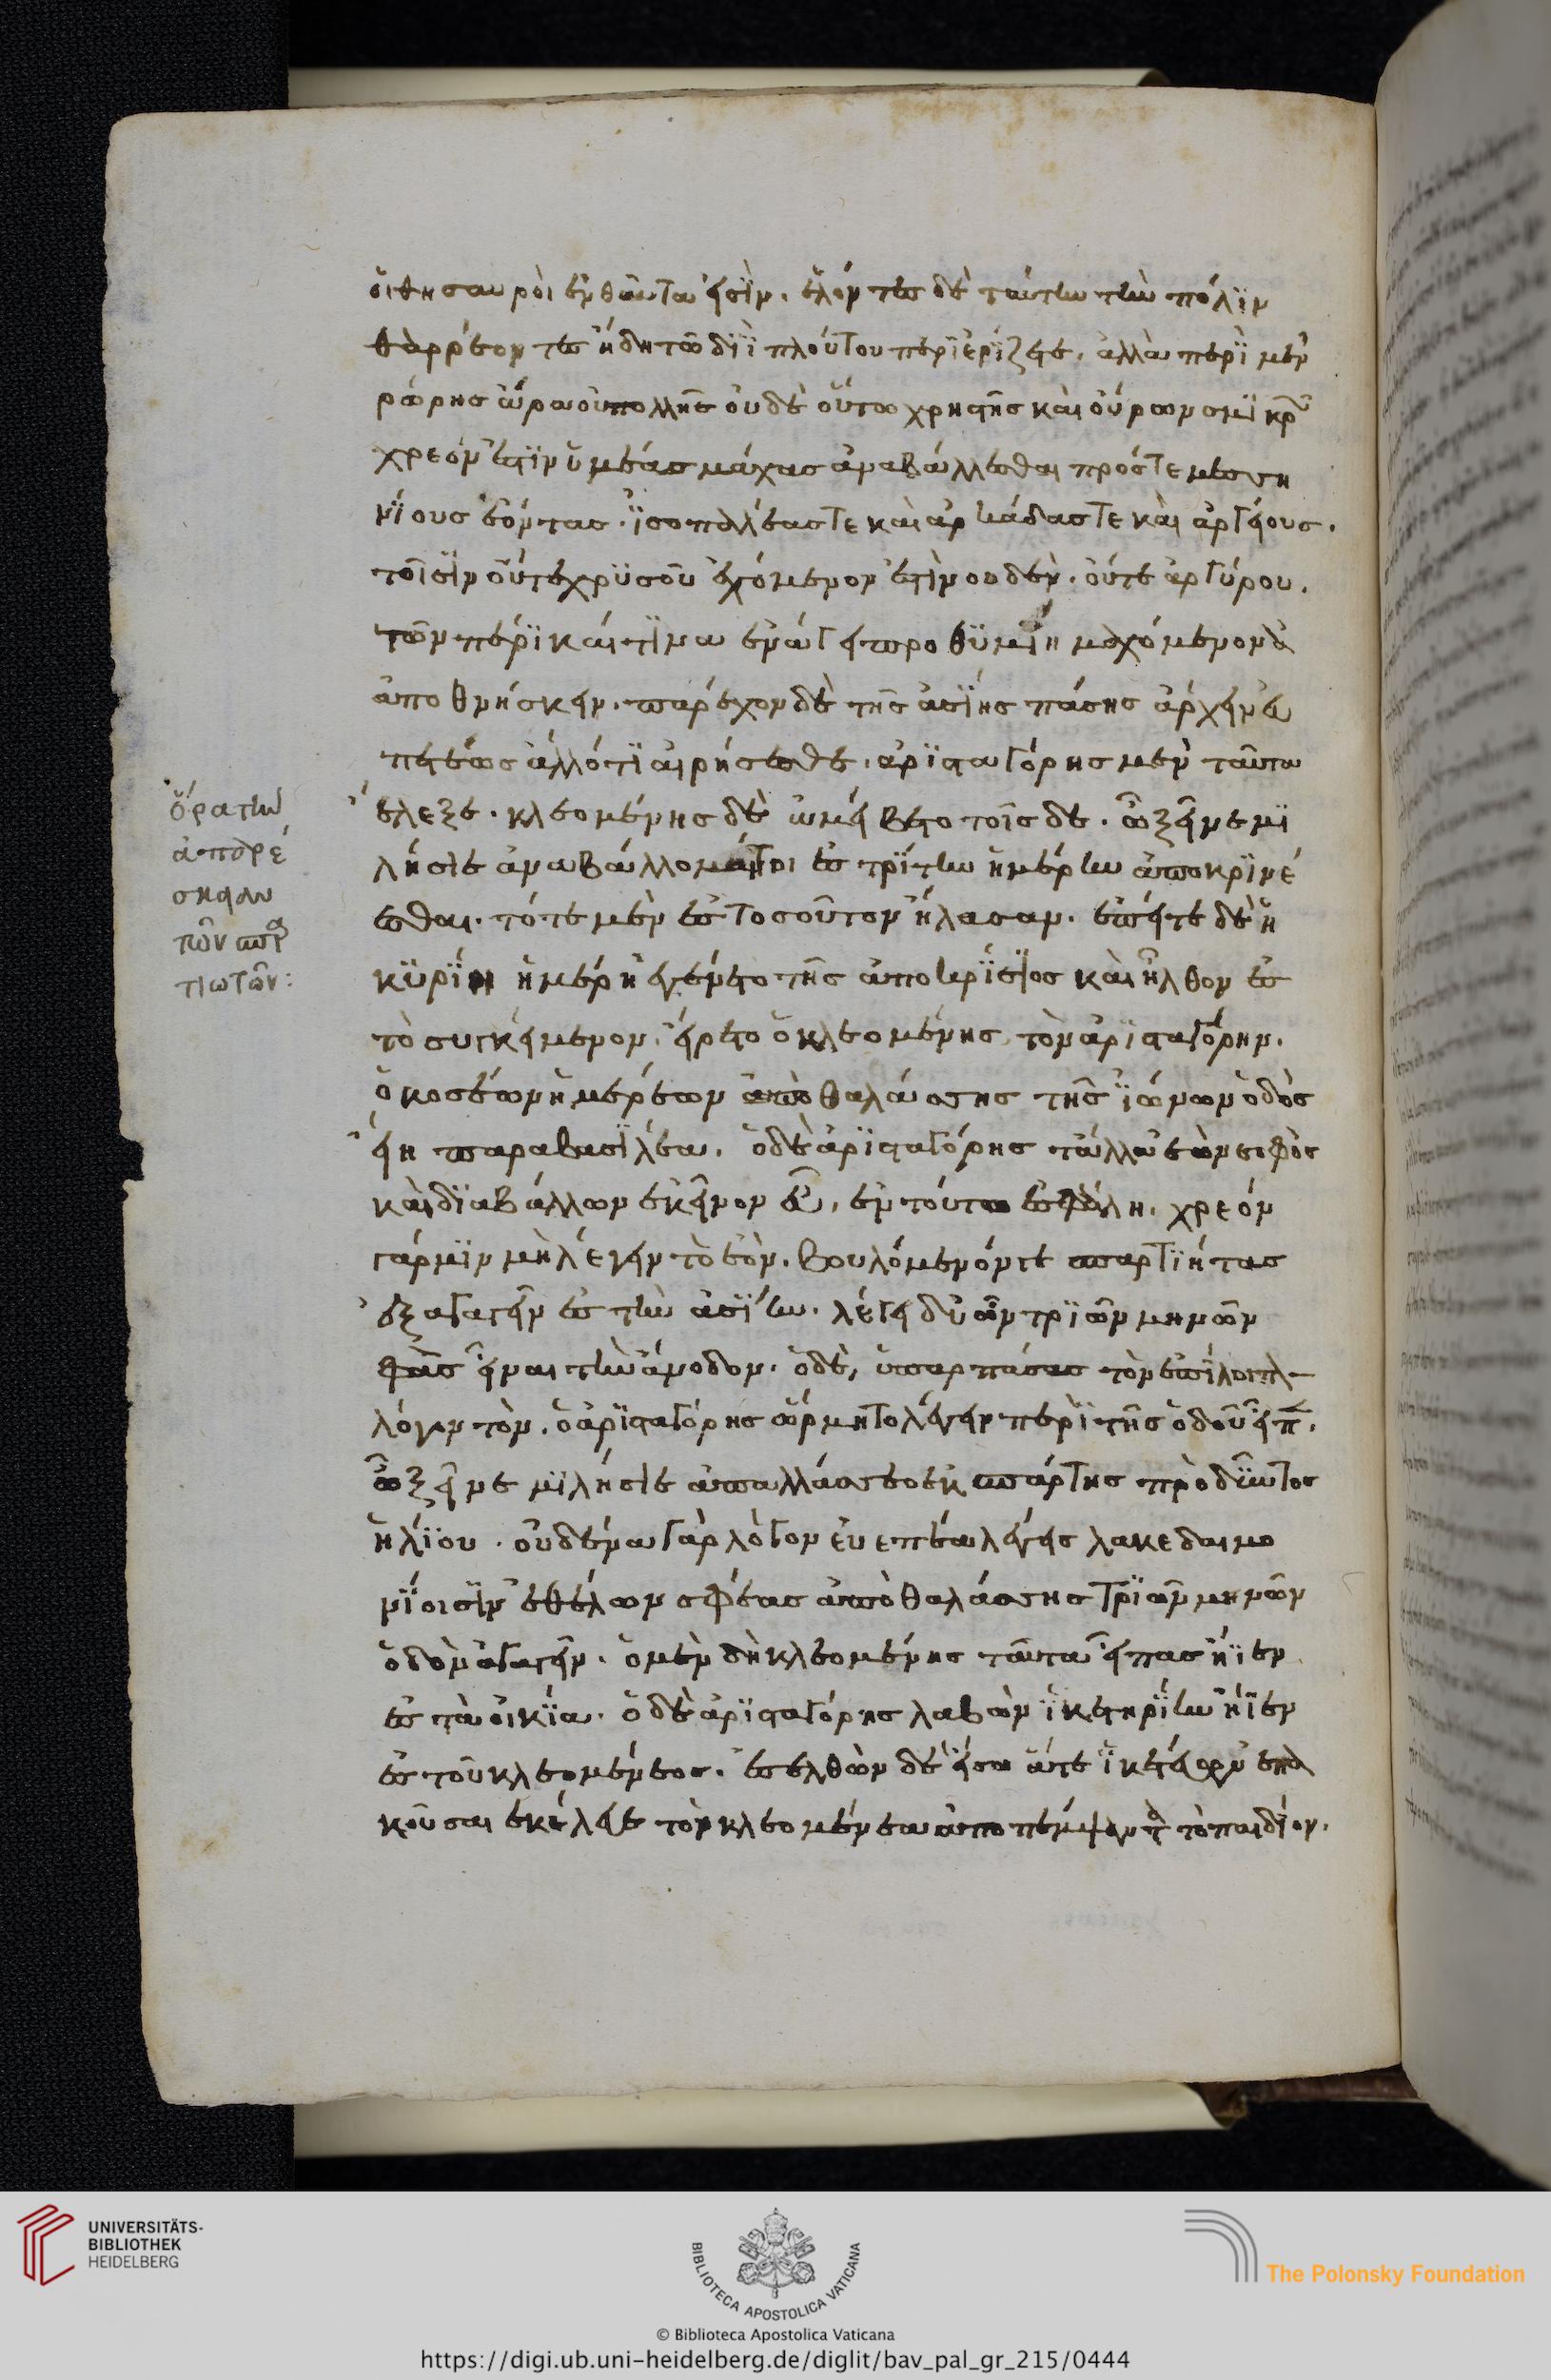 οἱ θησαυροὶ ἐνθαῦτα εἰσὶν. ἑλόντες δὲ ταύτην τὴν πόλϊν
θαρρέοντες ἤδη τῶ διῒ πλούτου περϊερϊζετε. ἀλλὰ περῒ μὲν
ρώρης ὥρα οὐ πολλῆς οὐδὲ οὕτω χρηστῆς καὶ οὔρων σμϊκρῶν
χρεόν ἐστϊν ὑμέας μάχας ἀναβάλλεσθαι πρόστε μεσση
νΐους ἐόντας. ἰσοπαλέαστε καὶ ἀρκάδαστε καὶ ἀργείους.
τοῖσϊν οὔτε χρϋσοῦ ἐχόμενον ἐστὶν οὐδὲν. οὔτε ἀργύρου.
τῶν πέρϊ καί τϊνα ἐνάγει προθϋμΐη μαχόμενον
ἀποθνήσκειν. παρέχον δὲ τῆς ἀσΐης πάσης ἄρχειν εὐ
πετέως ἄλλό τϊ αἱρήσεσθε. ἀρϊσταγόρης μὲν ταῦτα
ἔλεξε. κλεομένης δὲ ἀμείβετο τοῖσδε. ὦ ξεῖνε μϊ
λήσϊε ἀναβάλλομαί τοι ἐς τρΐτην ἡμέρην ἀποκρϊνέ
εσθαι. τότε μὲν ἐς τοσοῦτον ἤλασαν. ἐπείτε δὲ ἡ
κϋρΐη ἡμέρη ἐγένετο τῆς ἀποκρΐσϊος καὶ ἦλθον ἐς
τὸ συγκείμενον. εἴρετο ὁ κλεομένης τὸν ἀρϊσταγόρην.
ὁκοσέων ἡμερέων ἀπὸ θαλάσσης τῆς ἰώνων ὁδὸς
εἴη παρα βασϊλέα. ὁ δὲ ἀρϊσταγόρης τἄλλα ἐὼν σοφὸς
καὶ δϊαβάλλων ἐκεῖνον εὖ, ἐν τούτω ἐσφάλη. χρεὸν
γάρ μϊν μὴ λέγειν τὸ ἐὸν. βουλόμενόν γε σπαρτϊήτας
ἐξαγαγεῖν ἐς τὴν ἀσΐην. λέγει δ' ὦν τρϊῶν μηνῶν
φὰς εἶναι τὴν ἄνοδον. ὁ δὲ, ὑπαρπάσας τὸν ἐπίλοιπον
λόγον τὸν. ὁ ἀρϊσταγόρης ὥρμητο λέγειν περῒ τῆς ὁδοῦ εἶπεν.
ὦ ξεῖνε μϊλήσϊε ἀπαλλάσσεο ἐκ σπάρτης πρὸ δΰντος
ἡλΐου. οὐδένα γὰρ λόγον εὐεπέα λέγεις λακεδαιμο
νΐοισϊν ἐθέλων σφέας ἀπὸ θαλάσσης τρϊῶν μηνῶν
ὁδὸν ἀγαγεῖν. ὁ μὲν δὴ κλεομένης ταῦτα εἴπας ἤϊεν
ἐς τὰ οἰκΐα. ὁ δὲ ἀρϊσταγόρης λαβὼν ἱκετηρΐην ἤϊεν
ἐς τοῦ κλεομένεος. ἐσελθὼν δὲ ἔσω ἅτε ἱκετεύων ἐπα
κοῦσαι ἐκέλευε τὸν κλεομένεα ἀποπέμψαντα τὸ παιδΐον.
ὅρα τὴν
ἀπορέ
τῶν σπαρ
τιωτῶν:
UNIVERSITÄTS-
BIBLIOTHEK
HEIDELBERG
BIBLIOTECA APOSTOLICA VATICANA
© Biblioteca Apostolica Vaticana
The Polonsky Foundation
https://digi.ub.uni-heidelberg.de/diglit/bav_pal_gr_215/0444